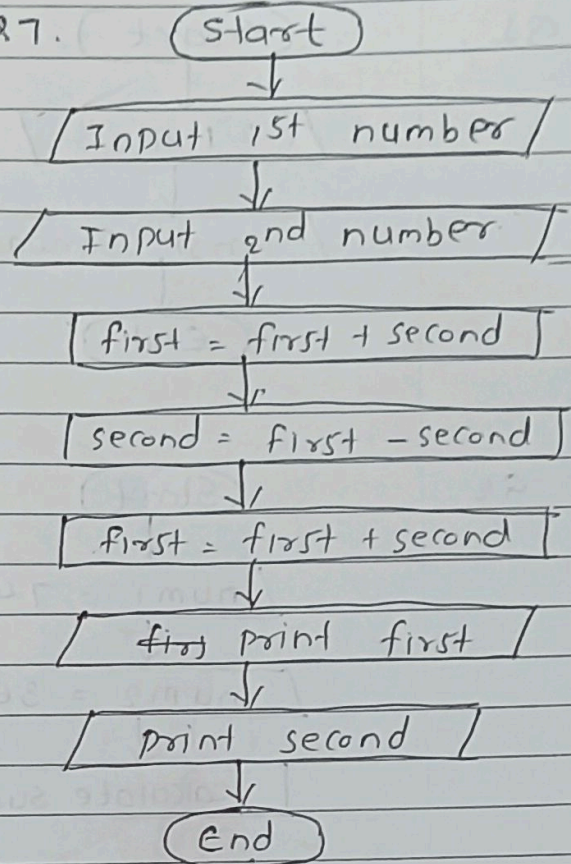 27.
Start
Input 1st number
Input 2nd number
first = first + second
second = first - second
first = first + second
print first
print second
End